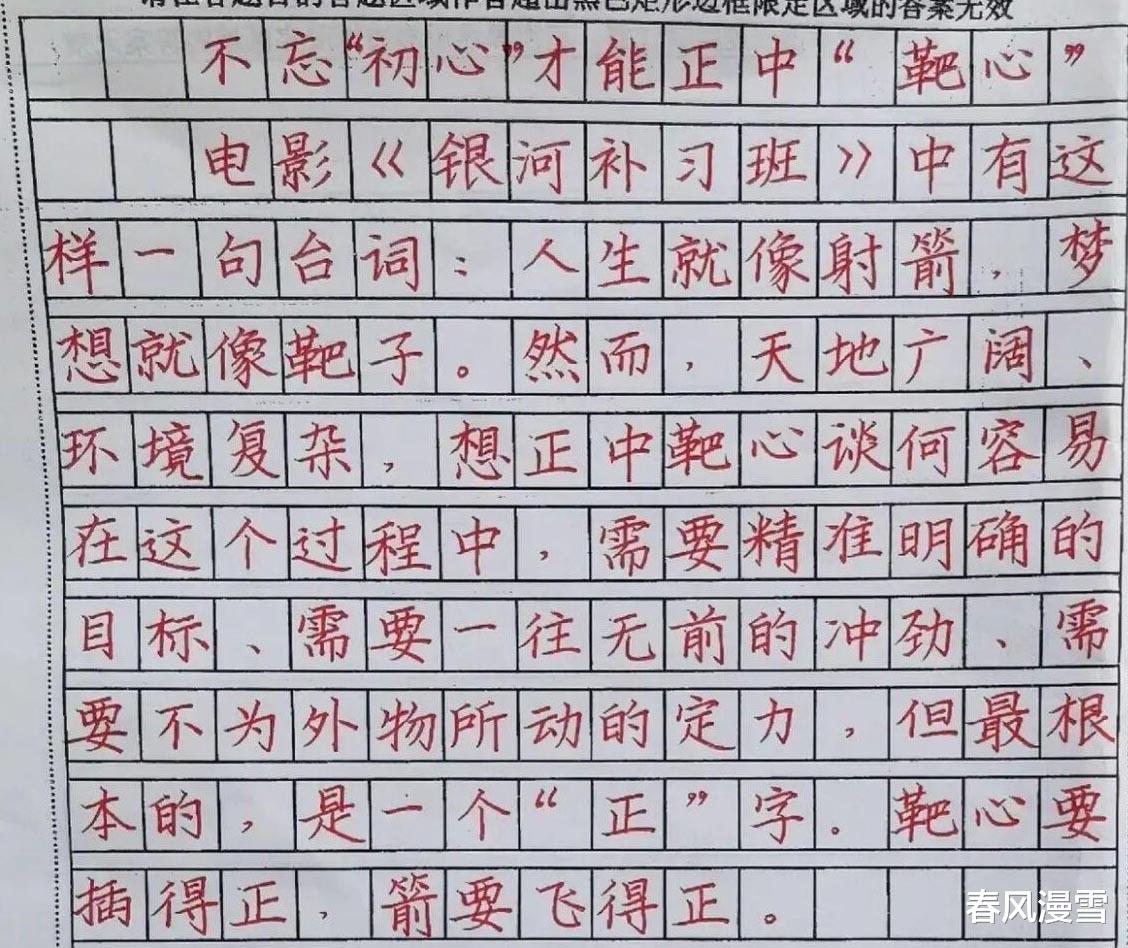 请在各题目的答题区域作答超出黑色矩形边框限定区域的答案无效
不忘“初心”才能正中“靶心”
电影《银河补习班》中有这
样一句台词：人生就像射箭，梦
想就像靶子。然而，天地广阔、
环境复杂，想正中靶心谈何容易
在这个过程中，需要精准明确的
目标、需要一往无前的冲劲、需
要不为外物所动的定力，但最根
本的，是一个“正”字。靶心要
插得正，箭要飞得正。
春风漫雪